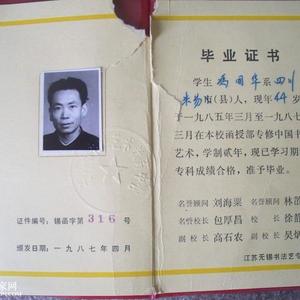 证件编号:锡函字第316号
颁发日期:一九八七年四月
毕业证书
学生冯国华系四川
市(县)人,现年44岁
于一九八五年三月至一九八七
三月在本校函授部专修中国书
艺术,学制贰年,现已学习期
专科成绩合格,准予毕业。
名誉顾问 刘海粟 名誉顾问 林散
名誉校长 包厚昌 校长 徐静
副校长 高石农 副校长 吴
江苏无锡书法艺专